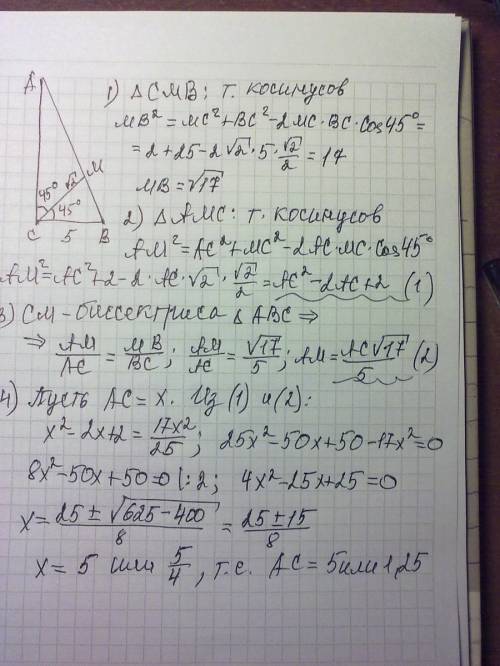 A
1) △CMB: т. косинусов
MB² = MC² + BC² - 2MC · BC · cos 45° =
= 2 + 25 - 2√2 · 5 · √2/2 = 17
MB = √17
M
45° √2
45°
C 5 B
2) △AMC: т. косинусов
AM² = AC² + MC² - 2AC · MC · cos 45°
AM² = AC² + 2 - 2 · AC · √2 · √2/2 = AC² - 2AC + 2 (1)
3) CM - биссектриса △ABC ⇒
⇒ AM/AC = MB/BC; AM/AC = √17/5; AM = AC√17/5 (2)
4) Пусть AC = x. Из (1) и (2):
x² - 2x + 2 = 17x²/25; 25x² - 50x + 50 - 17x² = 0
8x² - 50x + 50 = 0 |: 2; 4x² - 25x + 25 = 0
x = (25 ± √(625 - 400))/8 = (25 ± 15)/8
x = 5 или 5/4, т.е. AC = 5 или 1,25